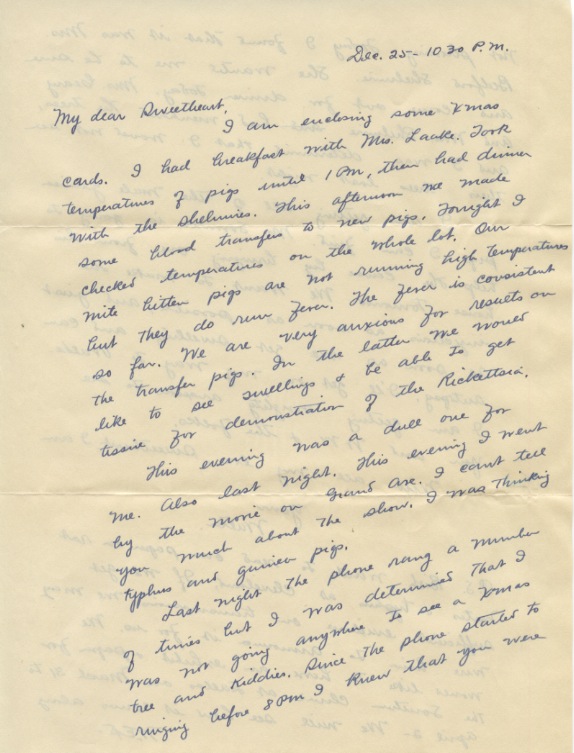 Dec. 25 - 10 30 P.M.
My dear Sweetheart,
I am enclosing some Xmas
cards. I had breakfast with Mrs. Laake. Took
temperatures of pigs until 1 PM, then had dinner
with the Shelmires. This afternoon we made
some blood transfers to new pigs. Tonight I
checked temperatures on the whole lot. Our
mite bitten pigs are not running high temperatures
but they do run fever. The fever is consistent
so far. We are very anxious for results on
the transfer pigs. In the latter we would
like to see swellings & be able to get
tissue for demonstration of the Rickettsia.
This evening was a dull one for
me. Also last night. This evening I went
by the movie on Grand Ave. I can't tell
you much about the show. I was thinking
typhus and guinea pigs.
Last night the phone rang a number
of times but I was determined that I
was not going anywhere to see a Xmas
tree and kiddies. Since the phone started to
ringing before 8 PM I knew that you were